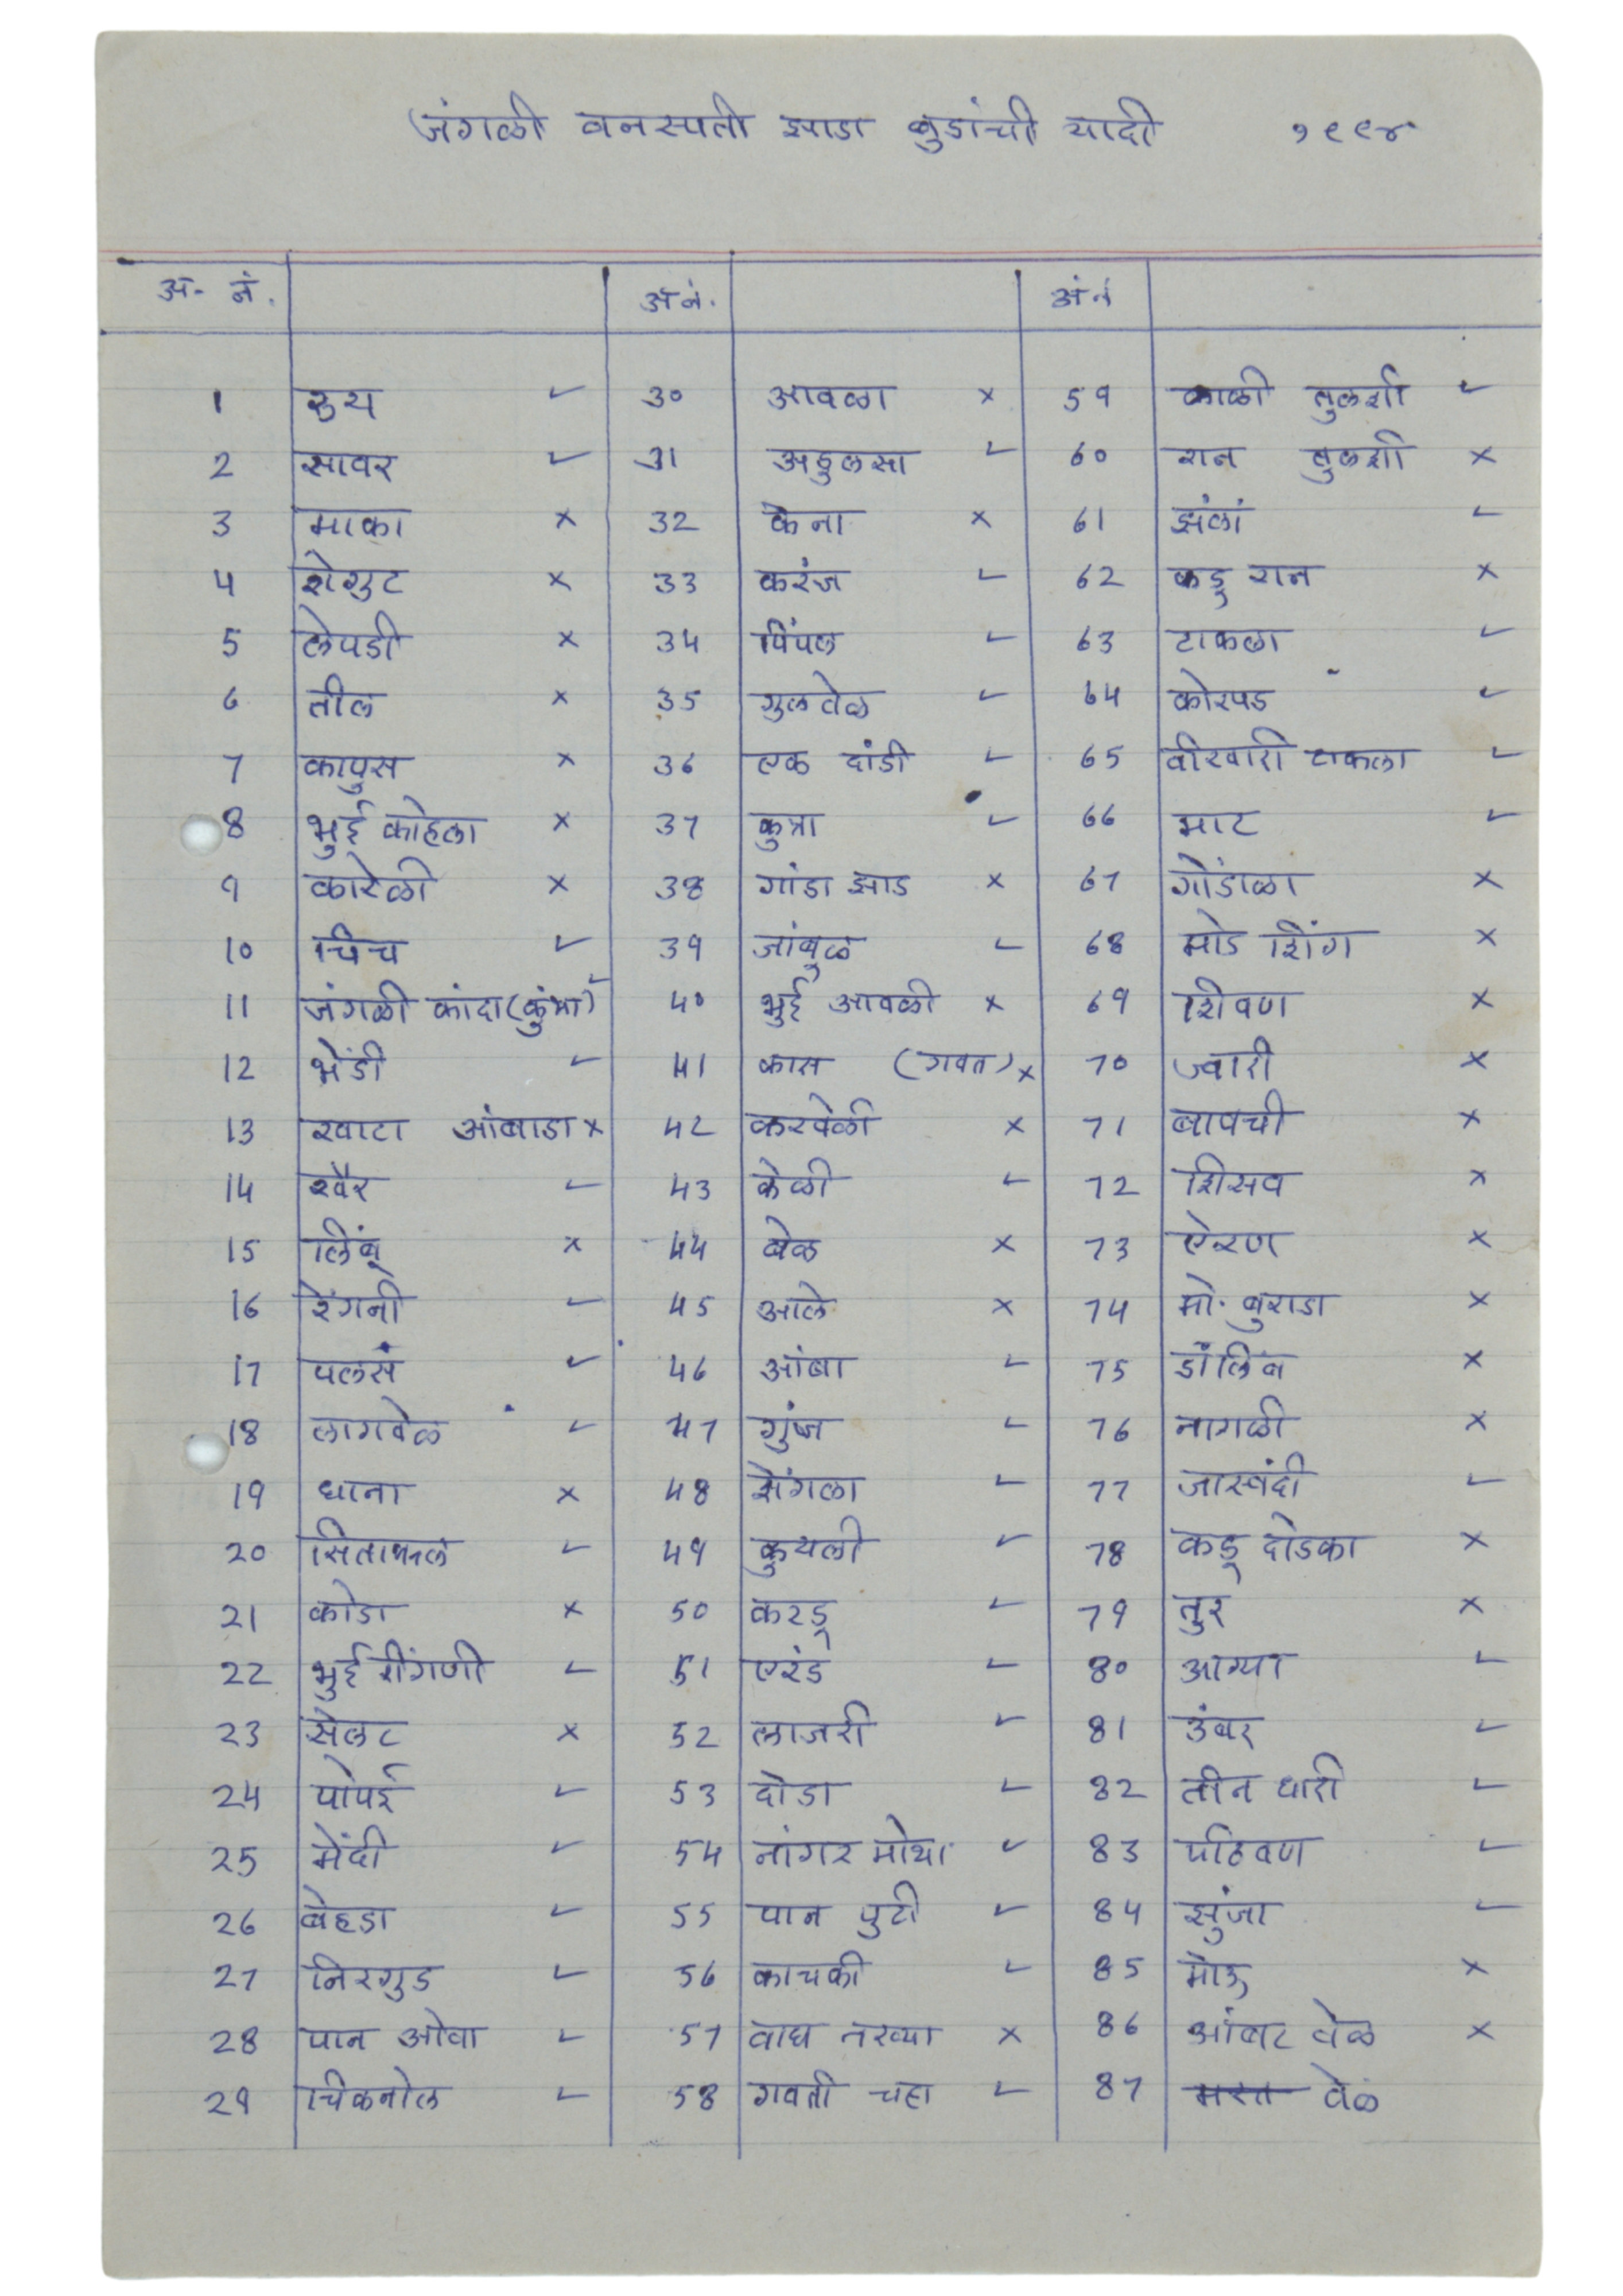 जंगली वनस्पती झाडा झुडांची यादी १९९४
अ- नं. अ नं. अं नं
1 रुय ✓ 30 आवळा × 59 काळी तुलशी ✓
2 सावर ✓ 31 अडुलसा ✓ 60 रान तुलशी ×
3 माका × 32 केना × 61 झंलां ✓
4 शेगुट × 33 करंज ✓ 62 कडु रान ×
5 लेपडी × 34 पिंपल ✓ 63 टाकला ✓
6 तील × 35 गुलवेल ✓ 64 कोरपड ✓
7 कापुस × 36 एक दांडी ✓ 65 वीखारी टाकला ✓
8 भुई कोहला × 37 कुत्रा ✓ 66 भाट ✓
9 कारेळी × 38 गांडा झाड × 67 गोंडाळा ×
10 चिच ✓ 39 जांबुळ ✓ 68 मोड शिंग ×
11 जंगळी कांदा (कुंभा) ✓ 40 भुई आवळी × 69 शिवण ×
12 भेंडी ✓ 41 कास (गवत) × 70 ज्वारी ×
13 खाटा आंबाडा × 42 करवेळी × 71 बावची ×
14 खैर ✓ 43 केळी ✓ 72 शिसव ×
15 लिंबू × 44 बेल × 73 ऐरण ×
16 रेंगनी ✓ 45 आले × 74 मो. बुराडा ×
17 पलसं ✓ 46 आंबा ✓ 75 डॉलिंब ×
18 लागवेल ✓ 47 गुंज ✓ 76 नागळी ×
19 धाना × 48 शेंगला ✓ 77 जास्वंदी ✓
20 सिताफल ✓ 49 कुयली ✓ 78 कडू दोडका ×
21 कोडा × 50 करडू ✓ 79 तुर ×
22 भुई रींगणी ✓ 51 एरंड ✓ 80 आग्या ✓
23 सेलट × 52 लाजरी ✓ 81 उंबर ✓
24 पोपई ✓ 53 दोडा ✓ 82 तीन धारी ✓
25 मेंदी ✓ 54 नांगर मोथा ✓ 83 पीठवण ✓
26 बेहडा ✓ 55 पान पुटी ✓ 84 सुंजा ✓
27 निरगुड ✓ 56 काचकी ✓ 85 मोऊ ×
28 पान ओवा ✓ 57 वाघ नख्या × 86 आंबट वेल ×
29 चिकनोल ✓ 58 गवती चहा ✓ 87 मस्त वेलं